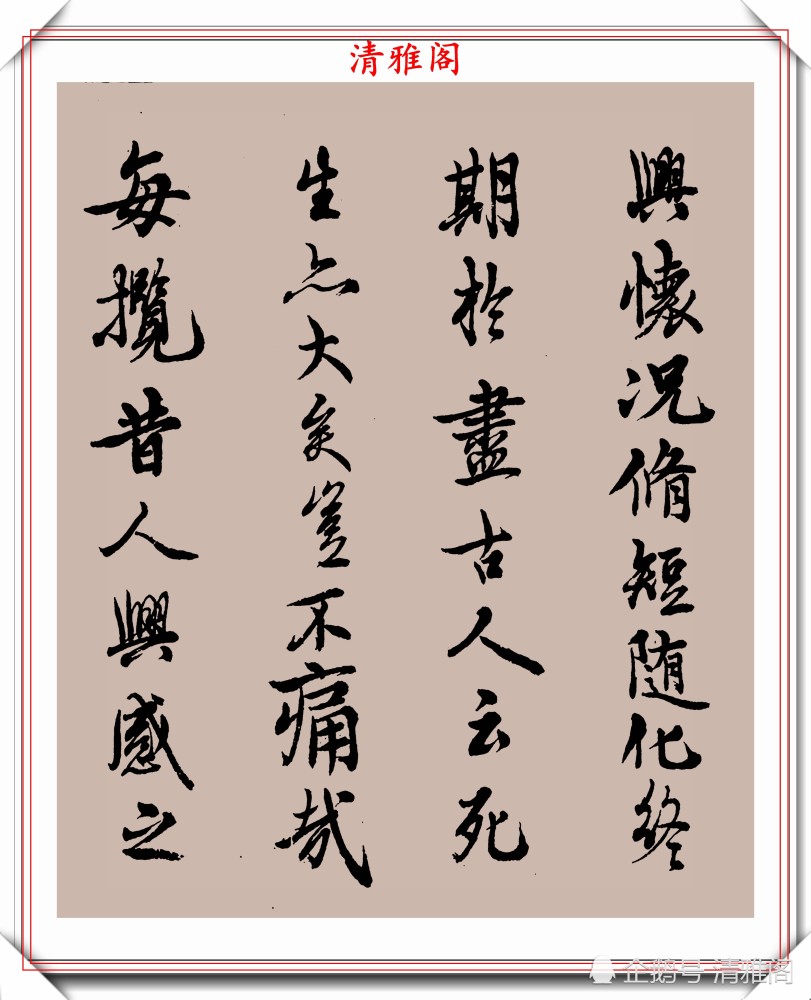 清雅阁
興懷况脩短随化終
期於盡古人云死
生亦大矣豈不痛哉
每攬昔人興感之
企鹅号 清雅阁